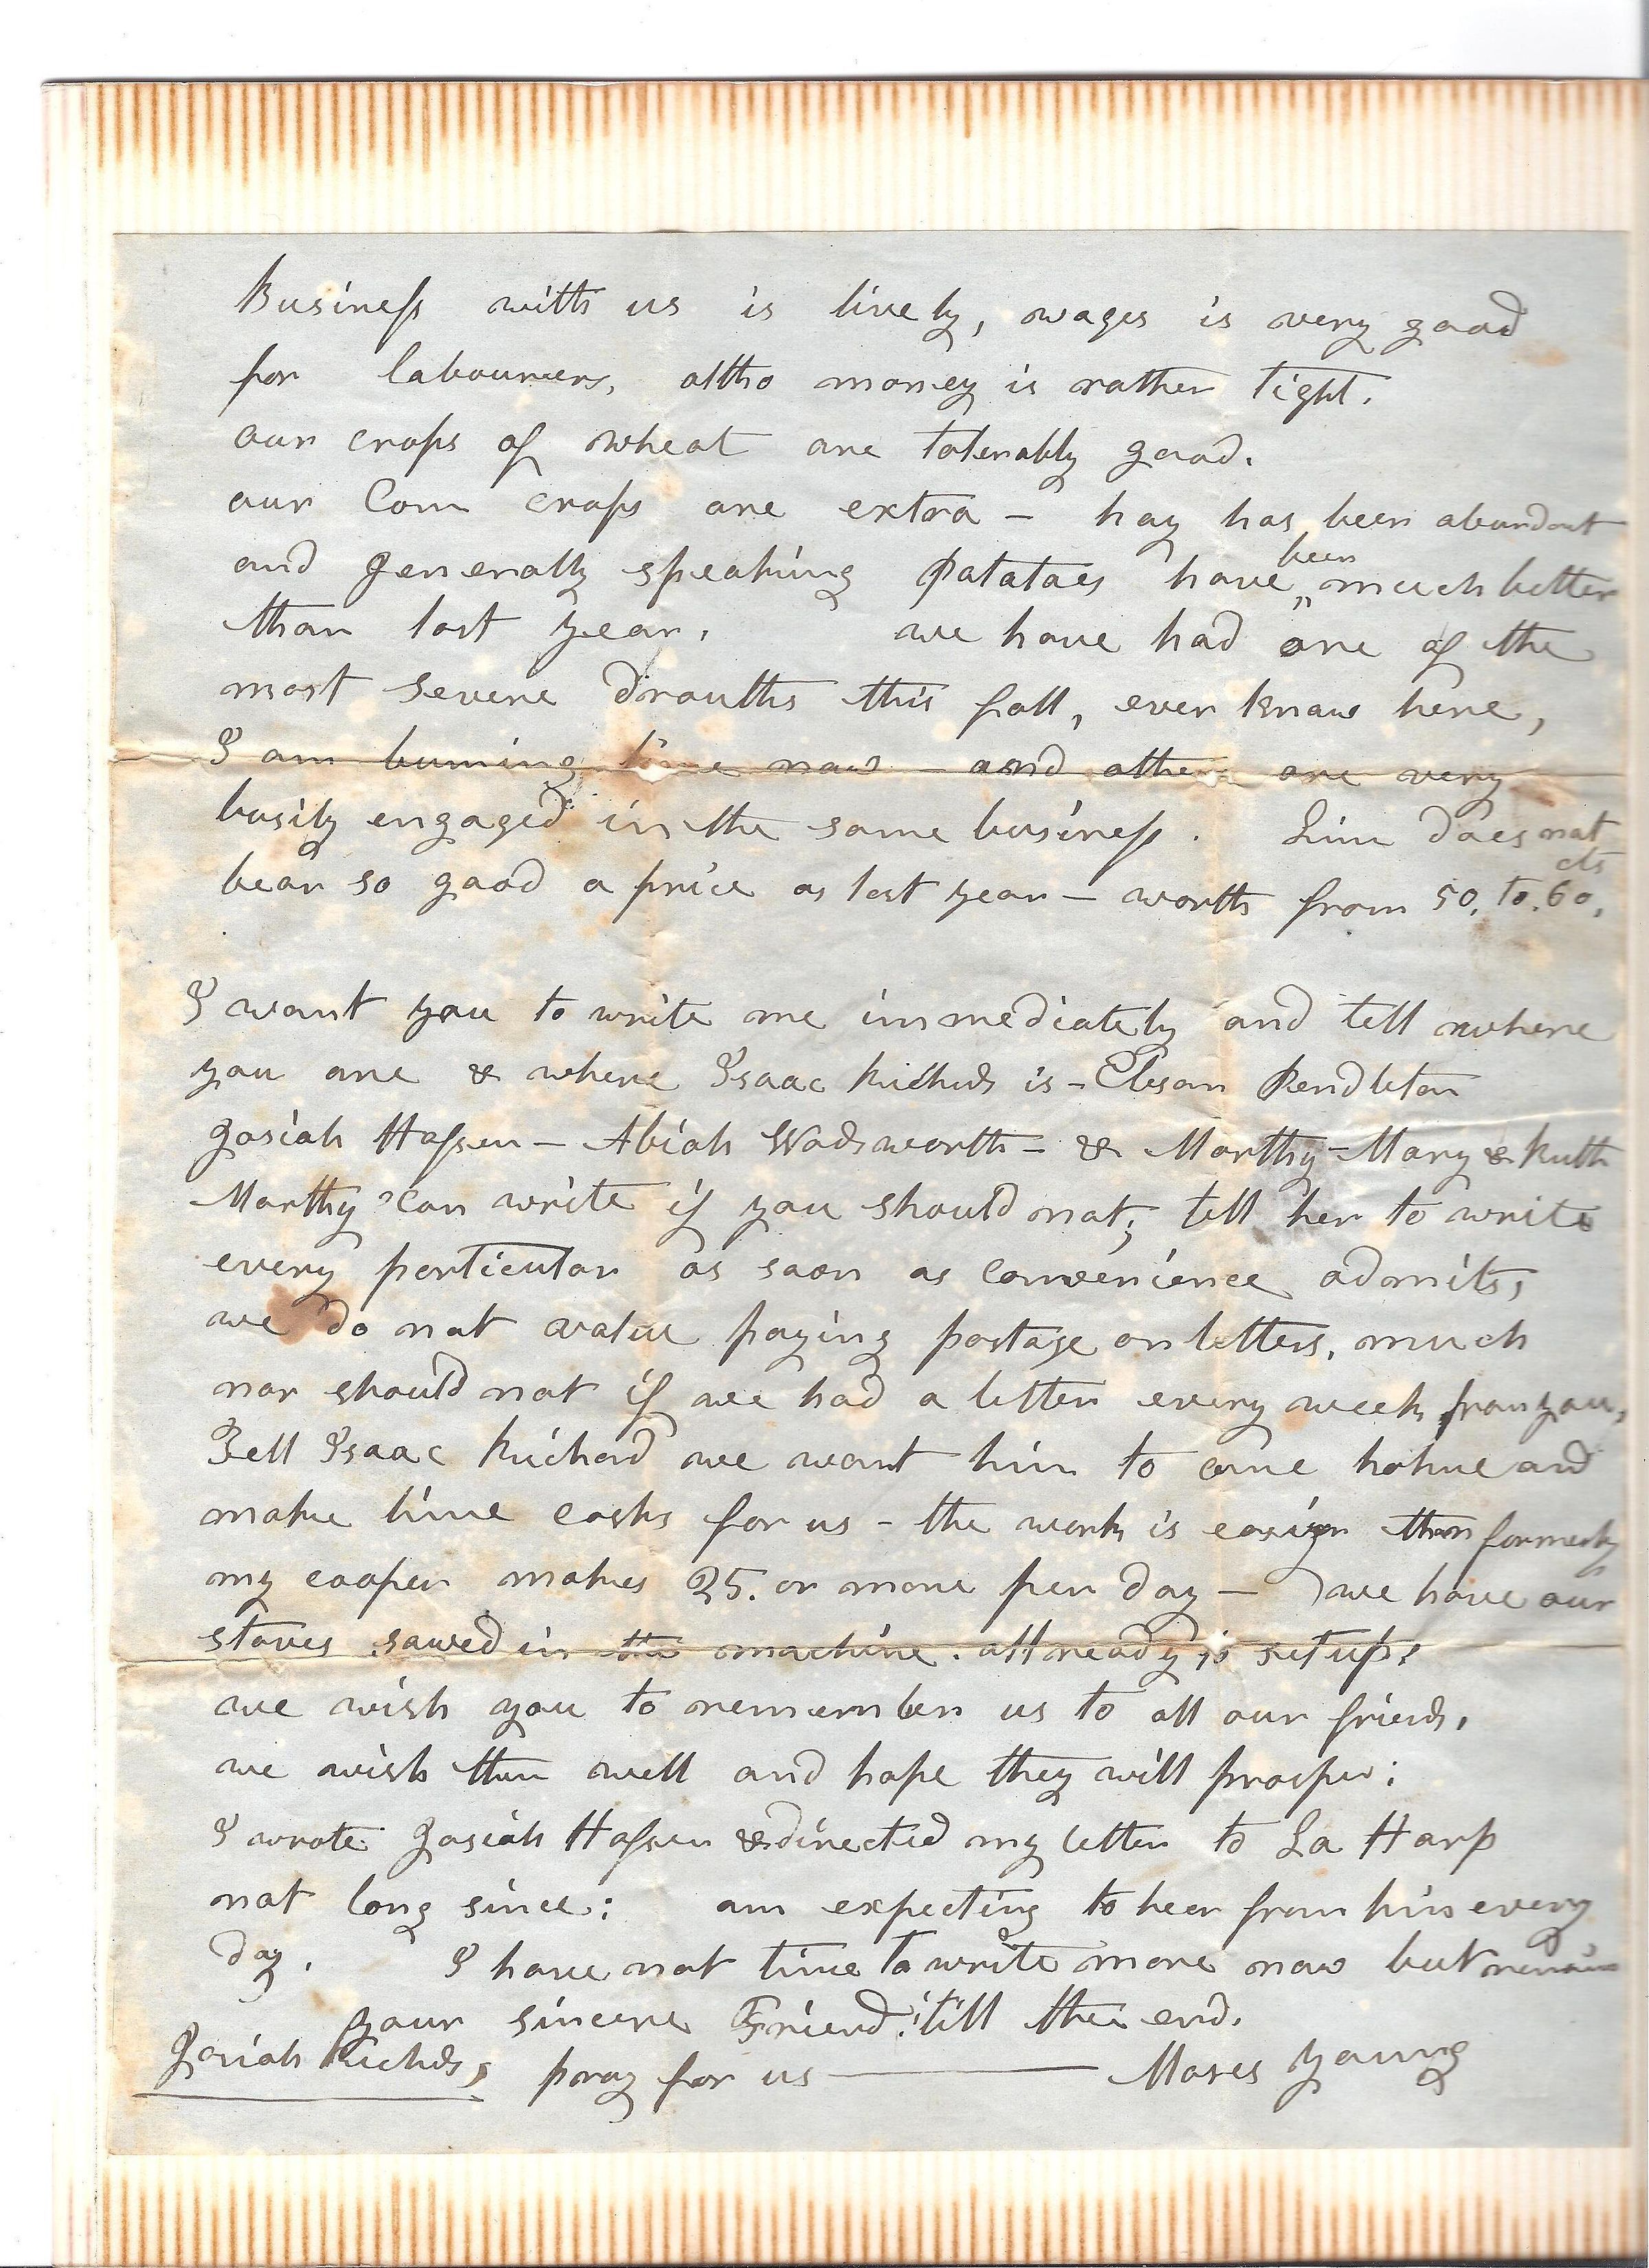 Business with us is lively, wages is very good
for labourers, altho money is rather tight.
our crops of wheat are tolerably good.
our Corn crops are extra – hay has been abundant
and generally speaking Potatoes have been much better
than last year. we have had one of the
most severe drouths this fall, ever know here,
I am burning lime now – and others are very
busily engaged in the same business. Lim does not
bear so good a price as last year – worth from 50. to. 60. cts
I want you to write me immediately and tell where
you are & where Isaac Richds is – Pendleton
Josiah – Abiah Wadsworth – & Marthy – Mary & Ruth
Marthy can write if you should not; tell her to write
every perticular as soon as convenience admits,
we do not value paying postage on letters, much
nor should not if we had a letter every week from you,
Tell Isaac Richard we want him to come home and
make lime casks for us – the work is easier than formerly
my cooper makes 25. or more per day – we have our
staves sawed in the machine. all ready to set up.
we wish you to remember us to all our friends,
we wish them well and hope they will prosper;
I wrote Josiah & directed my letter to La Harp
not long since; am expecting to hear from him every
day. I have not time to write more now but remain
your sincere Friend till the end.
Josiah Richds, pray for us — Moses Young